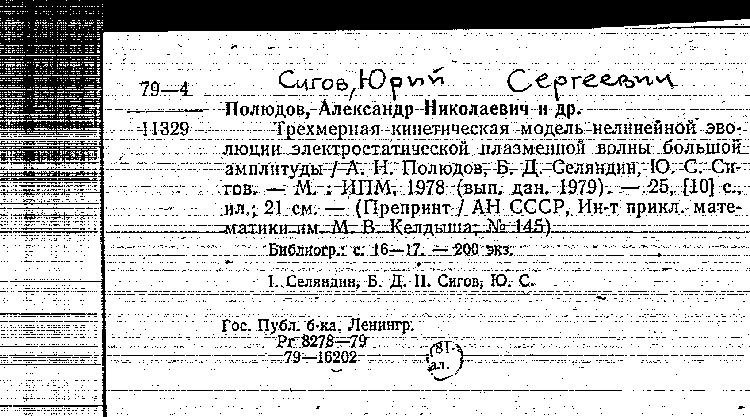 Сигов, Юрий Сергеевич
79—4
Полюдов, Александр Николаевич и др.
11329
Трехмерная кинетическая модель нелинейной эво-
люции электростатической плазменной волны большой
амплитуды / А. Н. Полюдов, Б. Д. Селяндин, Ю. С. Си-
гов. — М. : ИПМ, 1978 (вып. дан. 1979). — 25, [10] с.,
ил.; 21 см. — (Препринт / АН СССР, Ин-т прикл. мате-
матики им. М. В. Келдыша; № 145)
Библиогр.: с. 16—17. — 200 экз.
I. Селяндин, Б. Д. II. Сигов, Ю. С.
Гос. Публ. б-ка, Ленингр.
Рг 8278—79
79—16202